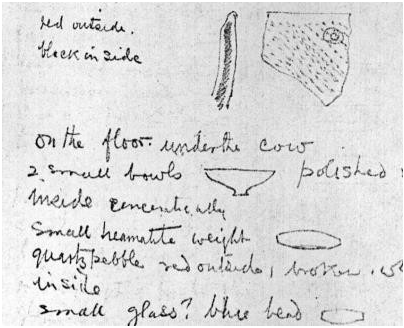 red outside.
black inside
on the floor. under the cow
2 small bowls polished
inside concentrically
small heamatite weight
quartz pebble red outside, broken.
inside
small glass? blue bead